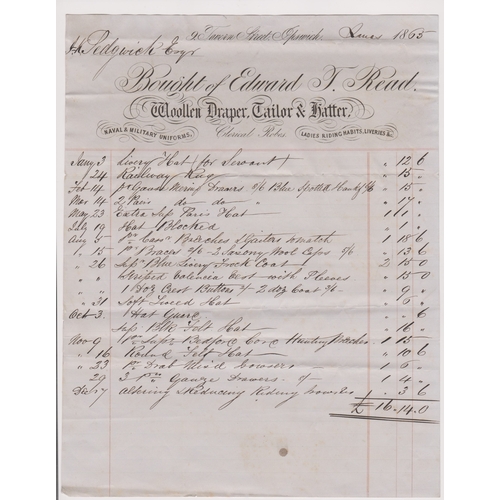 9 Tavern Street, Ipswich, 1865
Sedgwick Esqr
Bought of Edward T. Read.
Woollen Draper, Tailor & Hatter.
NAVAL & MILITARY UNIFORMS,
Clerical Robes.
LADIES RIDING HABITS, LIVERIES &c.
Jany 3 Livery Hat (for Servant) " 12 6
24 Railway Rug " 15 "
Feb 14 pr Gauze Merino Drawers Blue Spotted " 15 "
Mar 14 2 Pairs do do " " 17 "
May 23 Extra Sup Paris Hat 1 1 "
July 19 Hat Blocked " 1 "
Aug 5 Breeches & Gaiters to match 1 18 6
" 15 pr Braces 2/6 2 Saxony Wool " 13 6
" 26 Blue Livery Coat 2 15 0
" Striped Valencia Vest with Sleeves " 15 0
" 1 Doz Crest Buttons 4/- 2 doz Coat " 9 "
" 31 Soft Lined Hat " "
Oct 3 1 Hat Guard " " 6
" Sup Blk Felt Hat " 16 "
Nov 9 1 Pr Supr Bedford Cord Hunting Breeches 1 15 "
" 16 Round Felt Hat " 10 6
" 23 1 pr Drab Trowsers 1 "
" 29 3 prs Gauze Drawers 1 4 "
Dec 17 Altering & Reducing Riding Trowsers " 3 6
£ 16 . 14 . 0